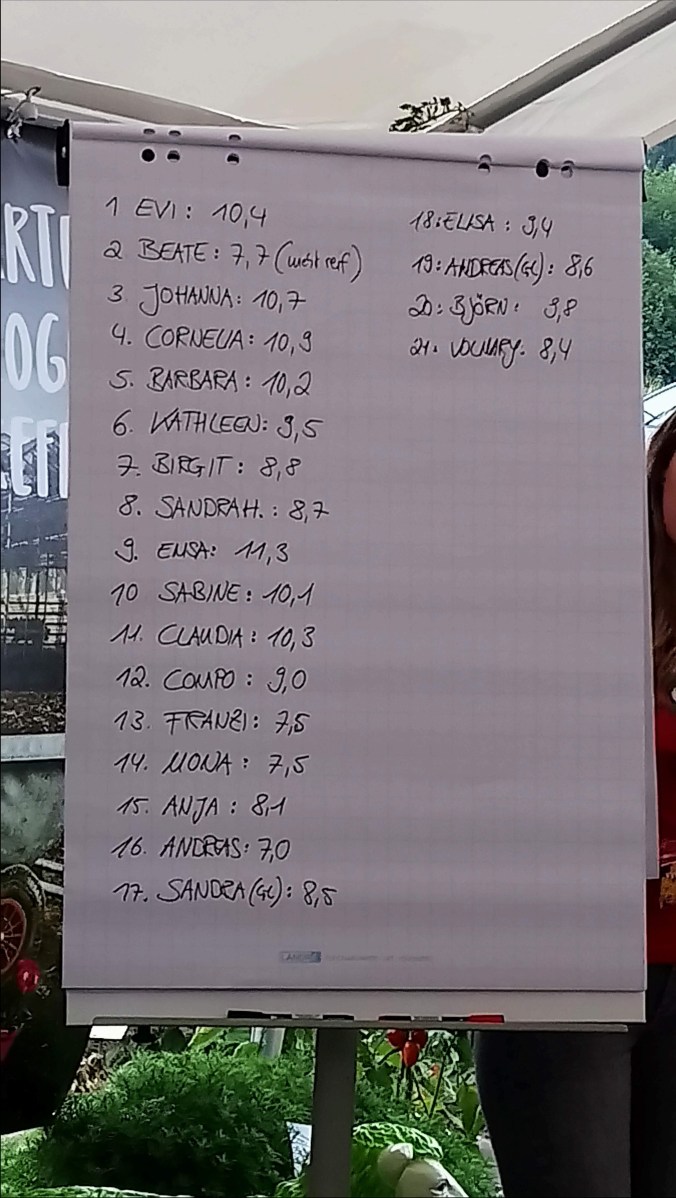 1 EVI: 10,4
2 BEATE: 7,7 (nicht reif)
3 JOHANNA: 10,7
4. CORNELIA: 10,9
5. BARBARA: 10,2
6. KATHLEEN: 9,5
7. BIRGIT: 8,8
8. SANDRA H.: 8,7
9. ELISA: 11,3
10 SABINE: 10,1
11. CLAUDIA: 10,3
12. COMPO: 9,0
13. FRANZI: 7,5
14. MONA: 7,5
15. ANJA: 8,1
16. ANDREAS: 7,0
17. SANDRA (GL): 8,5
18: ELISA: 9,4
19: ANDREAS (GL): 8,6
20: BJÖRN: 9,8
21: VOLMARY: 8,4
RT
OG